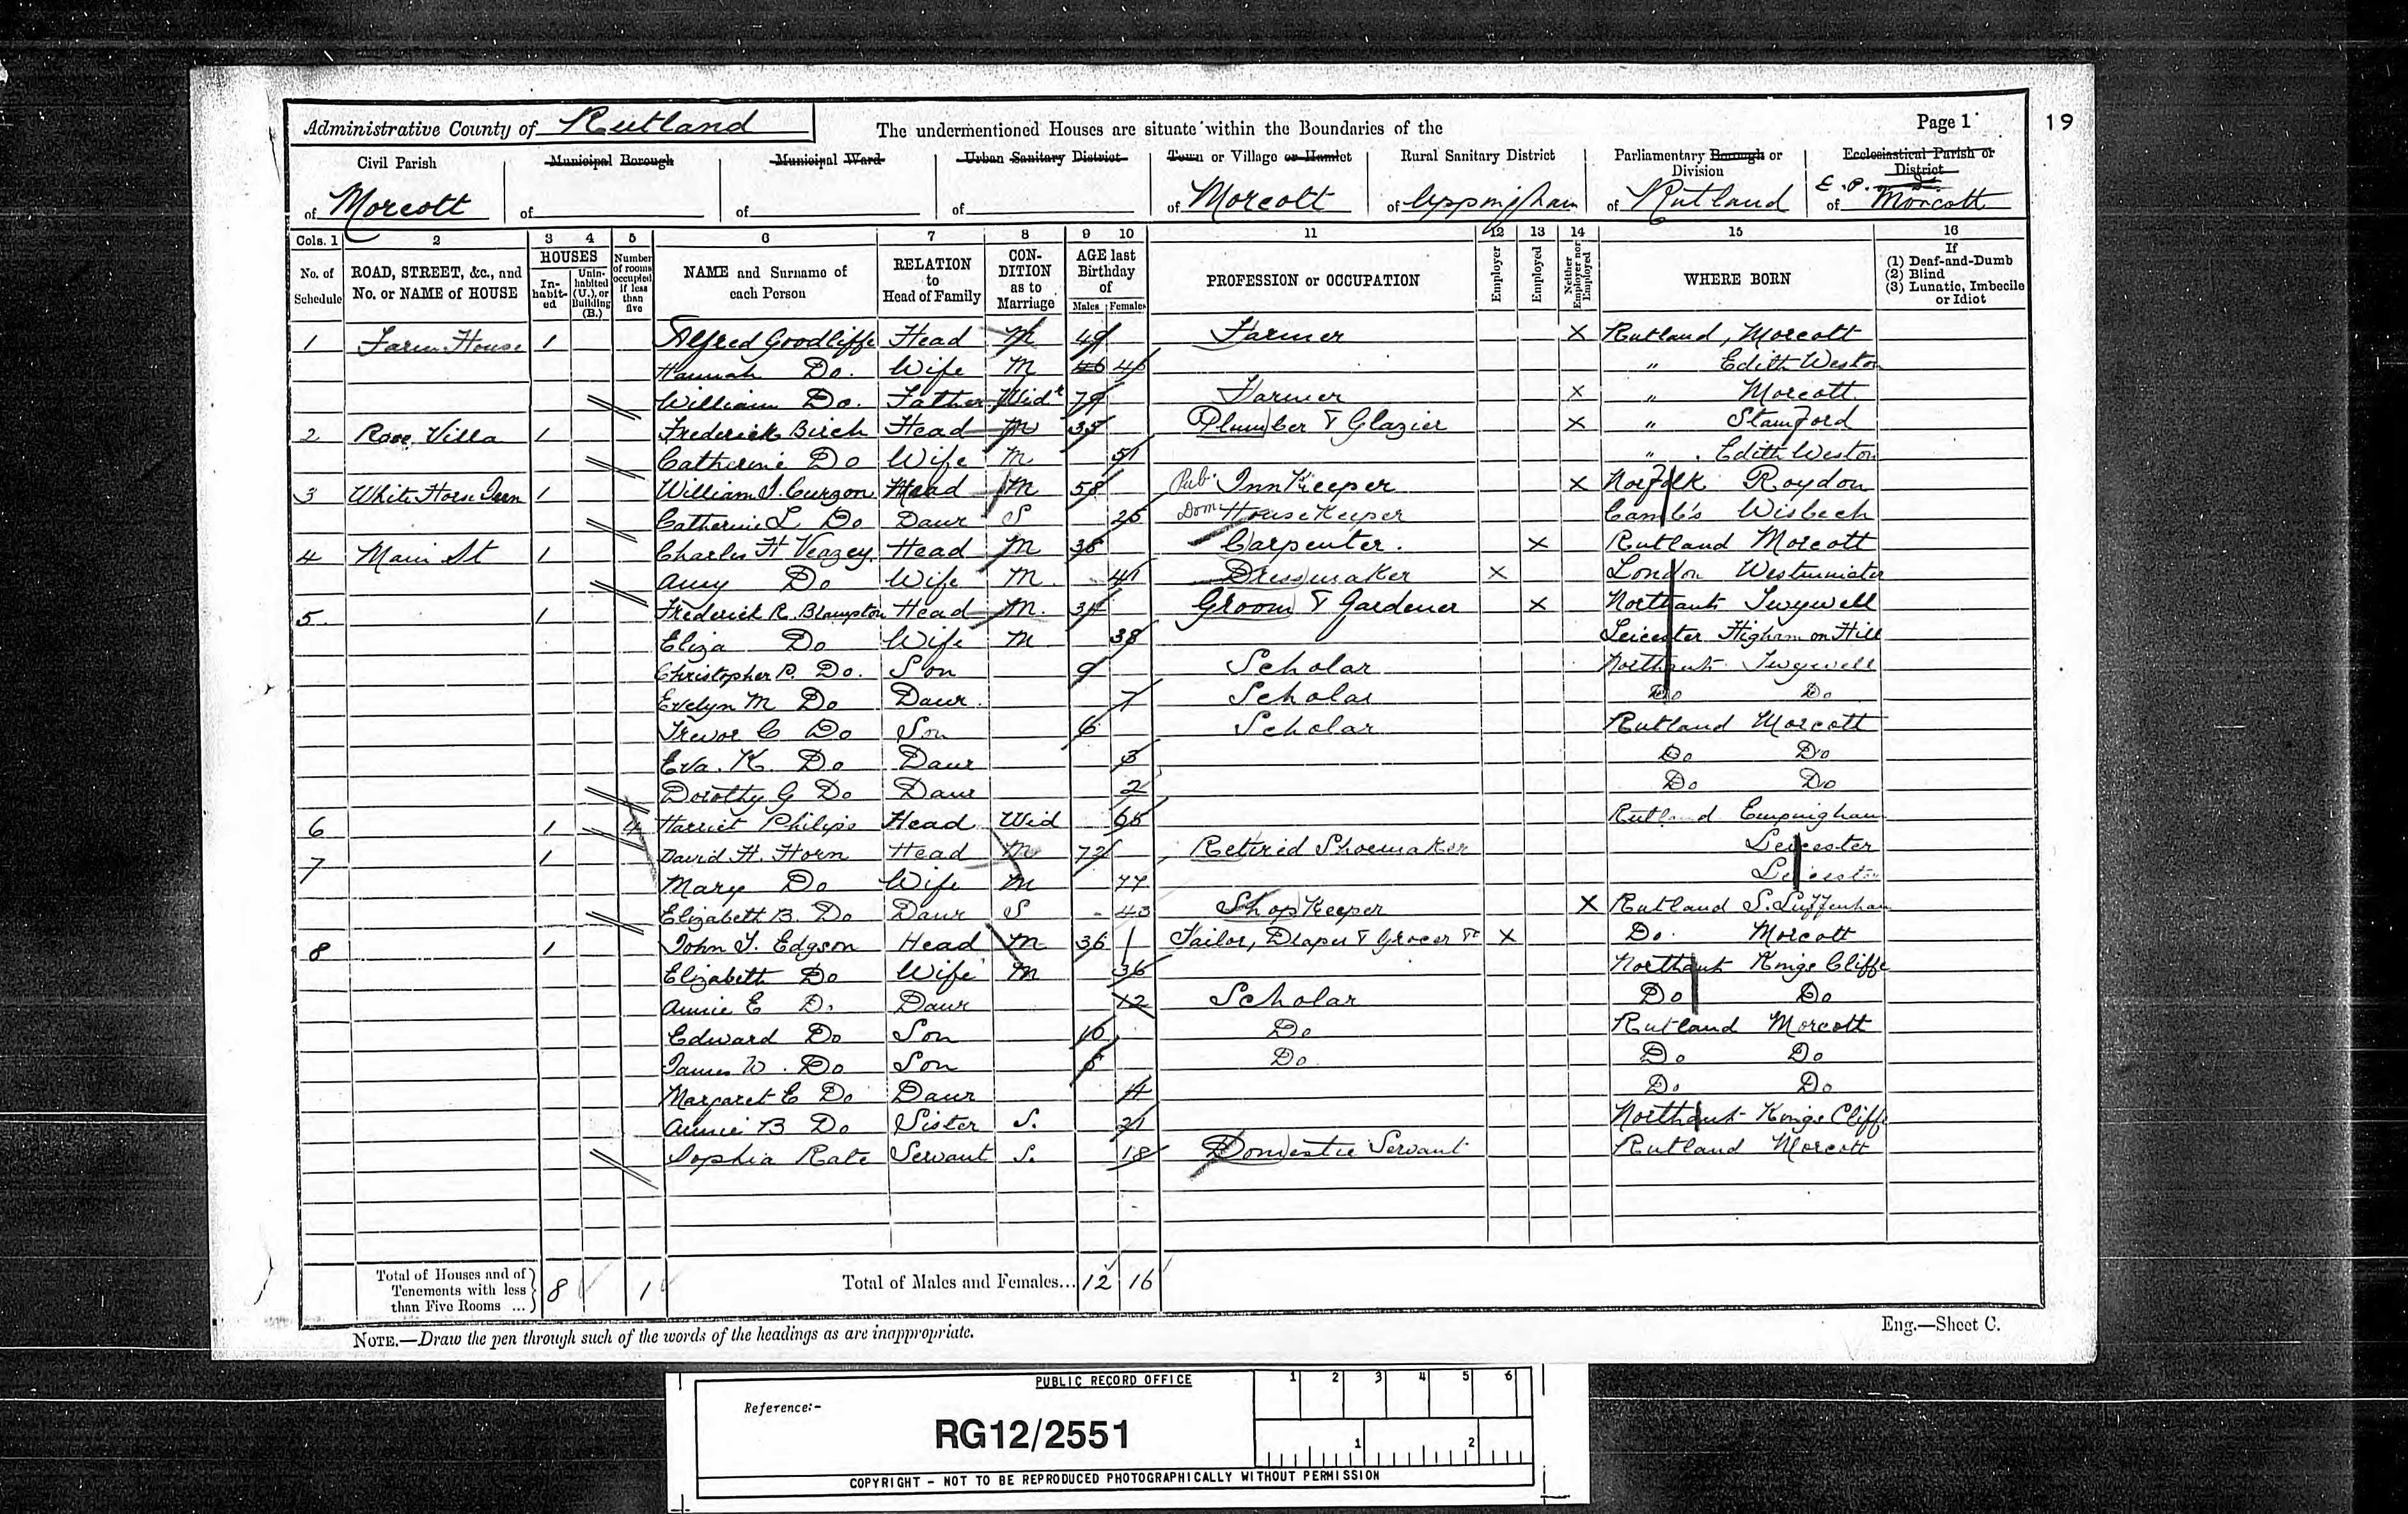 Administrative County of Rutland
The undermentioned Houses are situate within the Boundaries of the
Page 1
19
Civil Parish of Morcott
Municipal Borough of
Municipal Ward of
Urban Sanitary District of
Town or Village or Hamlet of Morcott
Rural Sanitary District of Uppingham
Parliamentary Borough or Division of Rutland
Ecclesiastical Parish or District of E.P. Morcott
Cols. 1 2 3 4 5 6 7 8 9 10 11 12 13 14 15 16
No. of Schedule
ROAD, STREET, &c., and No. or NAME of HOUSE
HOUSES
In-habit-ed
Unin-habited (U.), or Building (B.)
Number of rooms occupied if less than five
NAME and Surname of each Person
RELATION to Head of Family
CON-DITION as to Marriage
AGE last Birthday of
Males Females
PROFESSION or OCCUPATION
Employer
Employed
Neither Employer nor Employed
WHERE BORN
If (1) Deaf-and-Dumb (2) Blind (3) Lunatic, Imbecile or Idiot
1 Farm House 1 Alfred Goodliffe Head M 49 Farmer X Rutland, Morcott
Hannah Do. Wife M 46 46 " Edith Weston
William Do. Father Widr 79 Farmer X " Morcott
2 Rose Villa 1 Frederick Birch Head M 35 Plumber & Glazier X " Stamford
Catherine Do Wife M 51 " Edith Weston
3 White Horse Inn 1 William J. Curzon Head M 58 Pub. Inn Keeper X Norfolk Roydon
Catherine L Do Daur S 25 Dom House Keeper Camb's Wisbech
4 Main St 1 Charles H Veazey Head M 36 Carpenter. X Rutland Morcott
Amy Do Wife M. 41 Dressmaker X London Westminster
5. 1 Frederick R. Blampton Head M. 34 Groom & Gardener X Northants Twywell
Eliza Do Wife M 38 Leicester Higham on Hill
Christopher R. Do. Son 9 Scholar Northants Twywell
Evelyn M Do Daur. 7 Scholar Do Do
Trevor C Do Son 6 Scholar Rutland Morcott
Eva. K. Do Daur 3 Do Do
Dorothy G Do Daur 2 Do Do
6 1 4 Harriet Philips Head Wid 65 Rutland Empingham
7 1 David H. Horn Head M 72 Retired Shoemaker Leicester
Mary Do Wife M 77 Leicester
Elizabeth B. Do Daur S 43 Shop Keeper X Rutland S. Luffenham
8 1 John T. Edgson Head M 36 Tailor, Draper & Grocer &c X Do. Morcott
Elizabeth Do Wife M 36 Northants Kings Cliffe
Annie E Do Daur 12 Scholar Do Do
Edward Do Son 10 Do Rutland Morcott
James W. Do Son Do Do Do
Margaret E Do Daur 4 Do Do
Annie B Do Sister S. 21 Northants Kings Cliffe
Sophia Rate Servant S. 18 Domestic Servant Rutland Morcott
Total of Houses and of Tenements with less than Five Rooms ... 8 1
Total of Males and Females... 12 16
NOTE.—Draw the pen through such of the words of the headings as are inappropriate.
Eng.—Sheet C.
PUBLIC RECORD OFFICE
1 2 3 4 5 6
Reference:-
RG12/2551
1 2
COPYRIGHT - NOT TO BE REPRODUCED PHOTOGRAPHICALLY WITHOUT PERMISSION